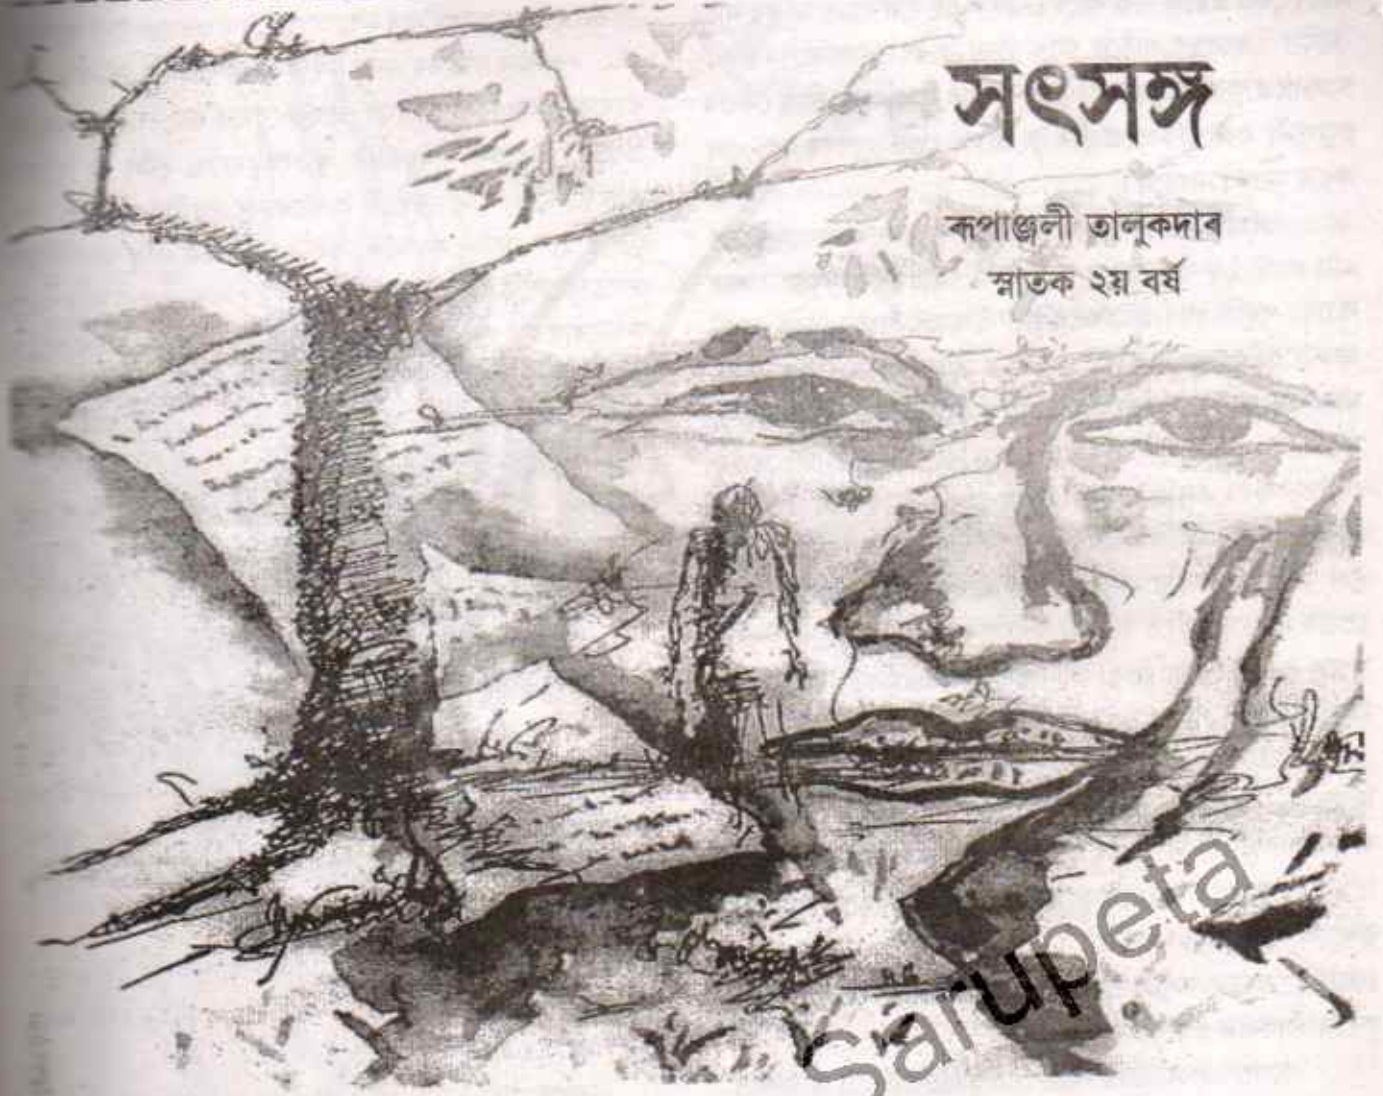 সৎসঙ্গ
ৰূপাঞ্জলী তালুকদাৰ
স্নাতক ২য় বৰ্ষ
Sarupeta